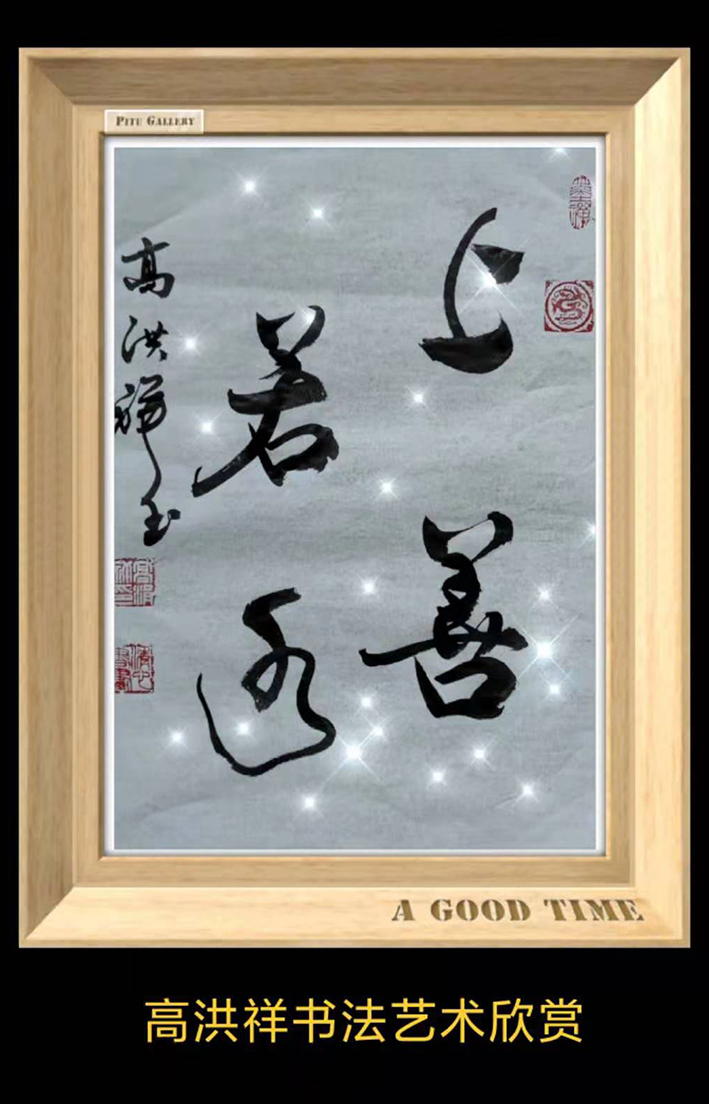 PITU GALLERY
上善
若水
高洪祥书
A GOOD TIME
高洪祥书法艺术欣赏